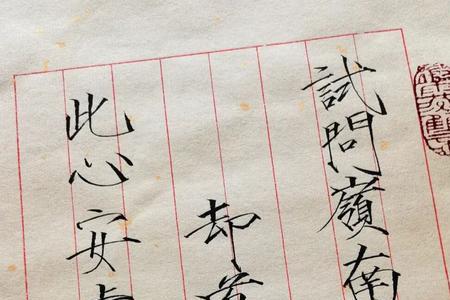 試問嶺南
却
此心安